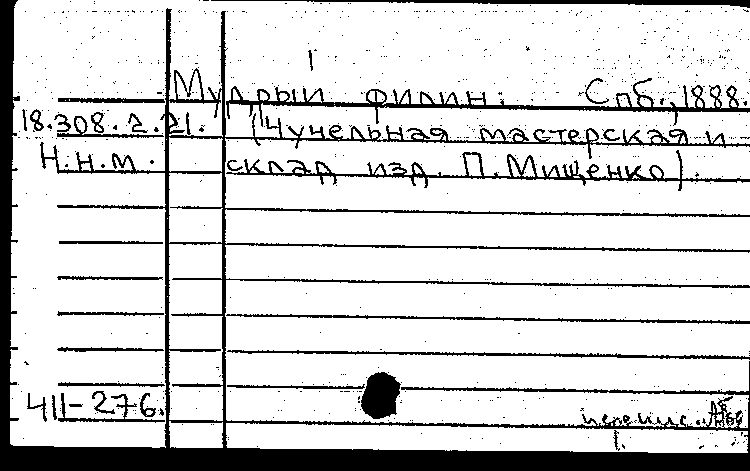 Мудрый филин. Спб., 1888.
18.308.2.21. (Чучельная мастерская и
Н.н.м. склад изд. П.Мищенко).
411-276.
перепис.